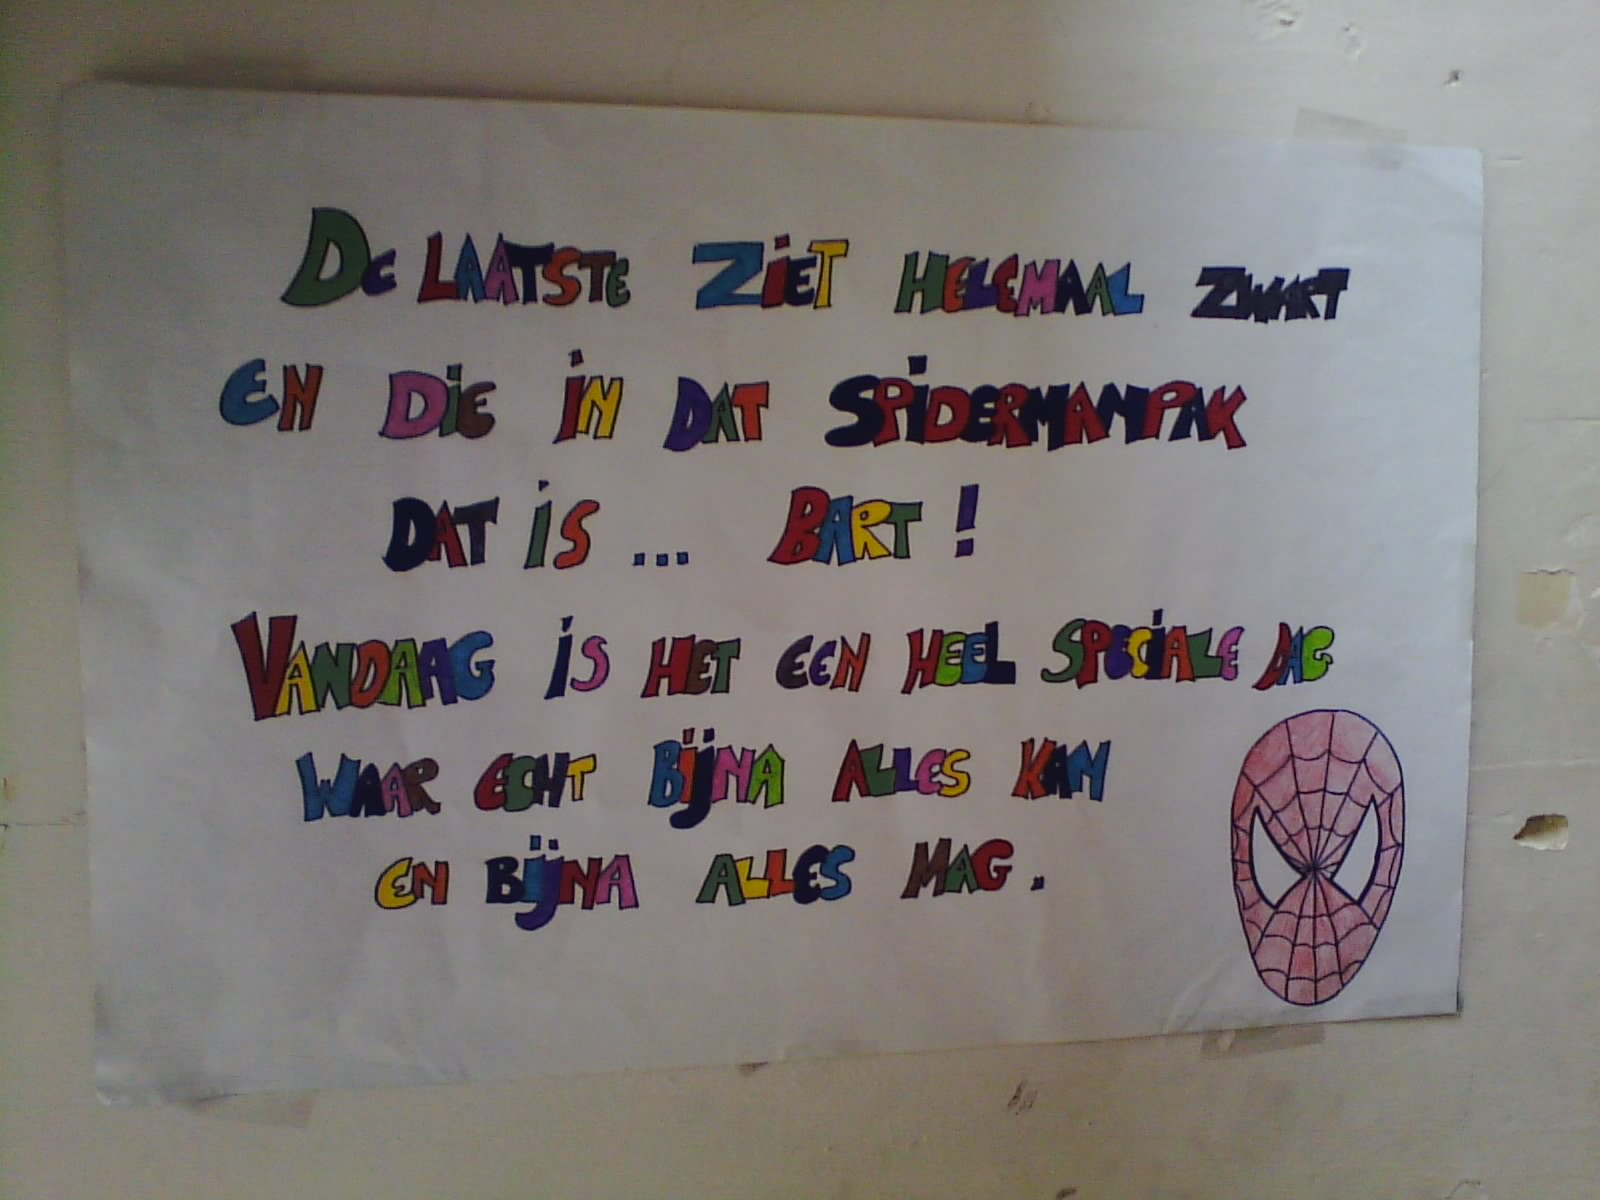 De LAATSTE ZiET HELEMAAL ZWART
EN DiE iN DAT SPiDERMANPAK
DAT iS ... BART !
VANDAAG iS HET EEN HEEL SPECiALE DAG
WAAR ECHT BijNA ALLES KAN
EN BijNA ALLES MAG .